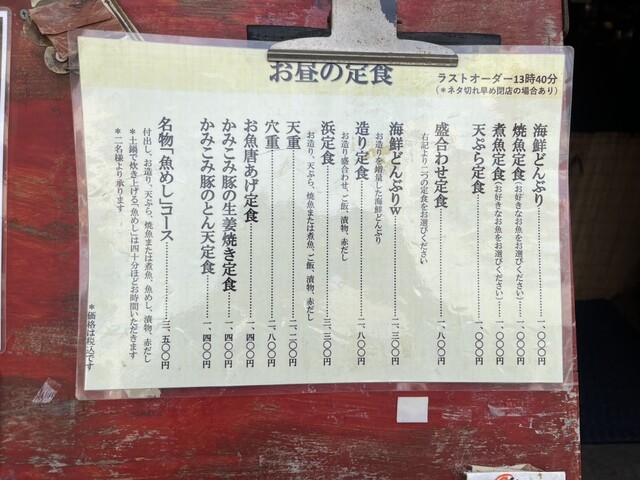 お昼の定食
ラストオーダー13時40分
（＊ネタ切れ早め閉店の場合あり）
海鮮どんぶり…………一、〇〇〇円
焼魚定食（お好きなお魚をお選びください）…一、〇〇〇円
煮魚定食（お好きなお魚をお選びください）…一、〇〇〇円
天ぷら定食…………一、〇〇〇円
盛合わせ定食…………一、八〇〇円
右記より二つの定食をお選びください
海鮮どんぶりW…………二、三〇〇円
お造りを増量した海鮮どんぶり
造り定食…………一、八〇〇円
お造り盛合わせ、ご飯、漬物、赤だし
浜定食…………二、三〇〇円
お造り、天ぷら、焼魚または煮魚、ご飯、漬物、赤だし
天重…………一、二〇〇円
穴重…………一、八〇〇円
お魚唐あげ定食…………一、四〇〇円
かみこみ豚の生姜焼き定食…………一、四〇〇円
かみこみ豚のとん天定食…………一、四〇〇円
名物「魚めし」コース…………三、五〇〇円
付出し、お造り、天ぷら、焼魚または煮魚、魚めし、漬物、赤だし
＊土鍋で炊き上げる「魚めし」は四十分ほどお時間いただきます
＊二名様より承ります
＊価格は税込です